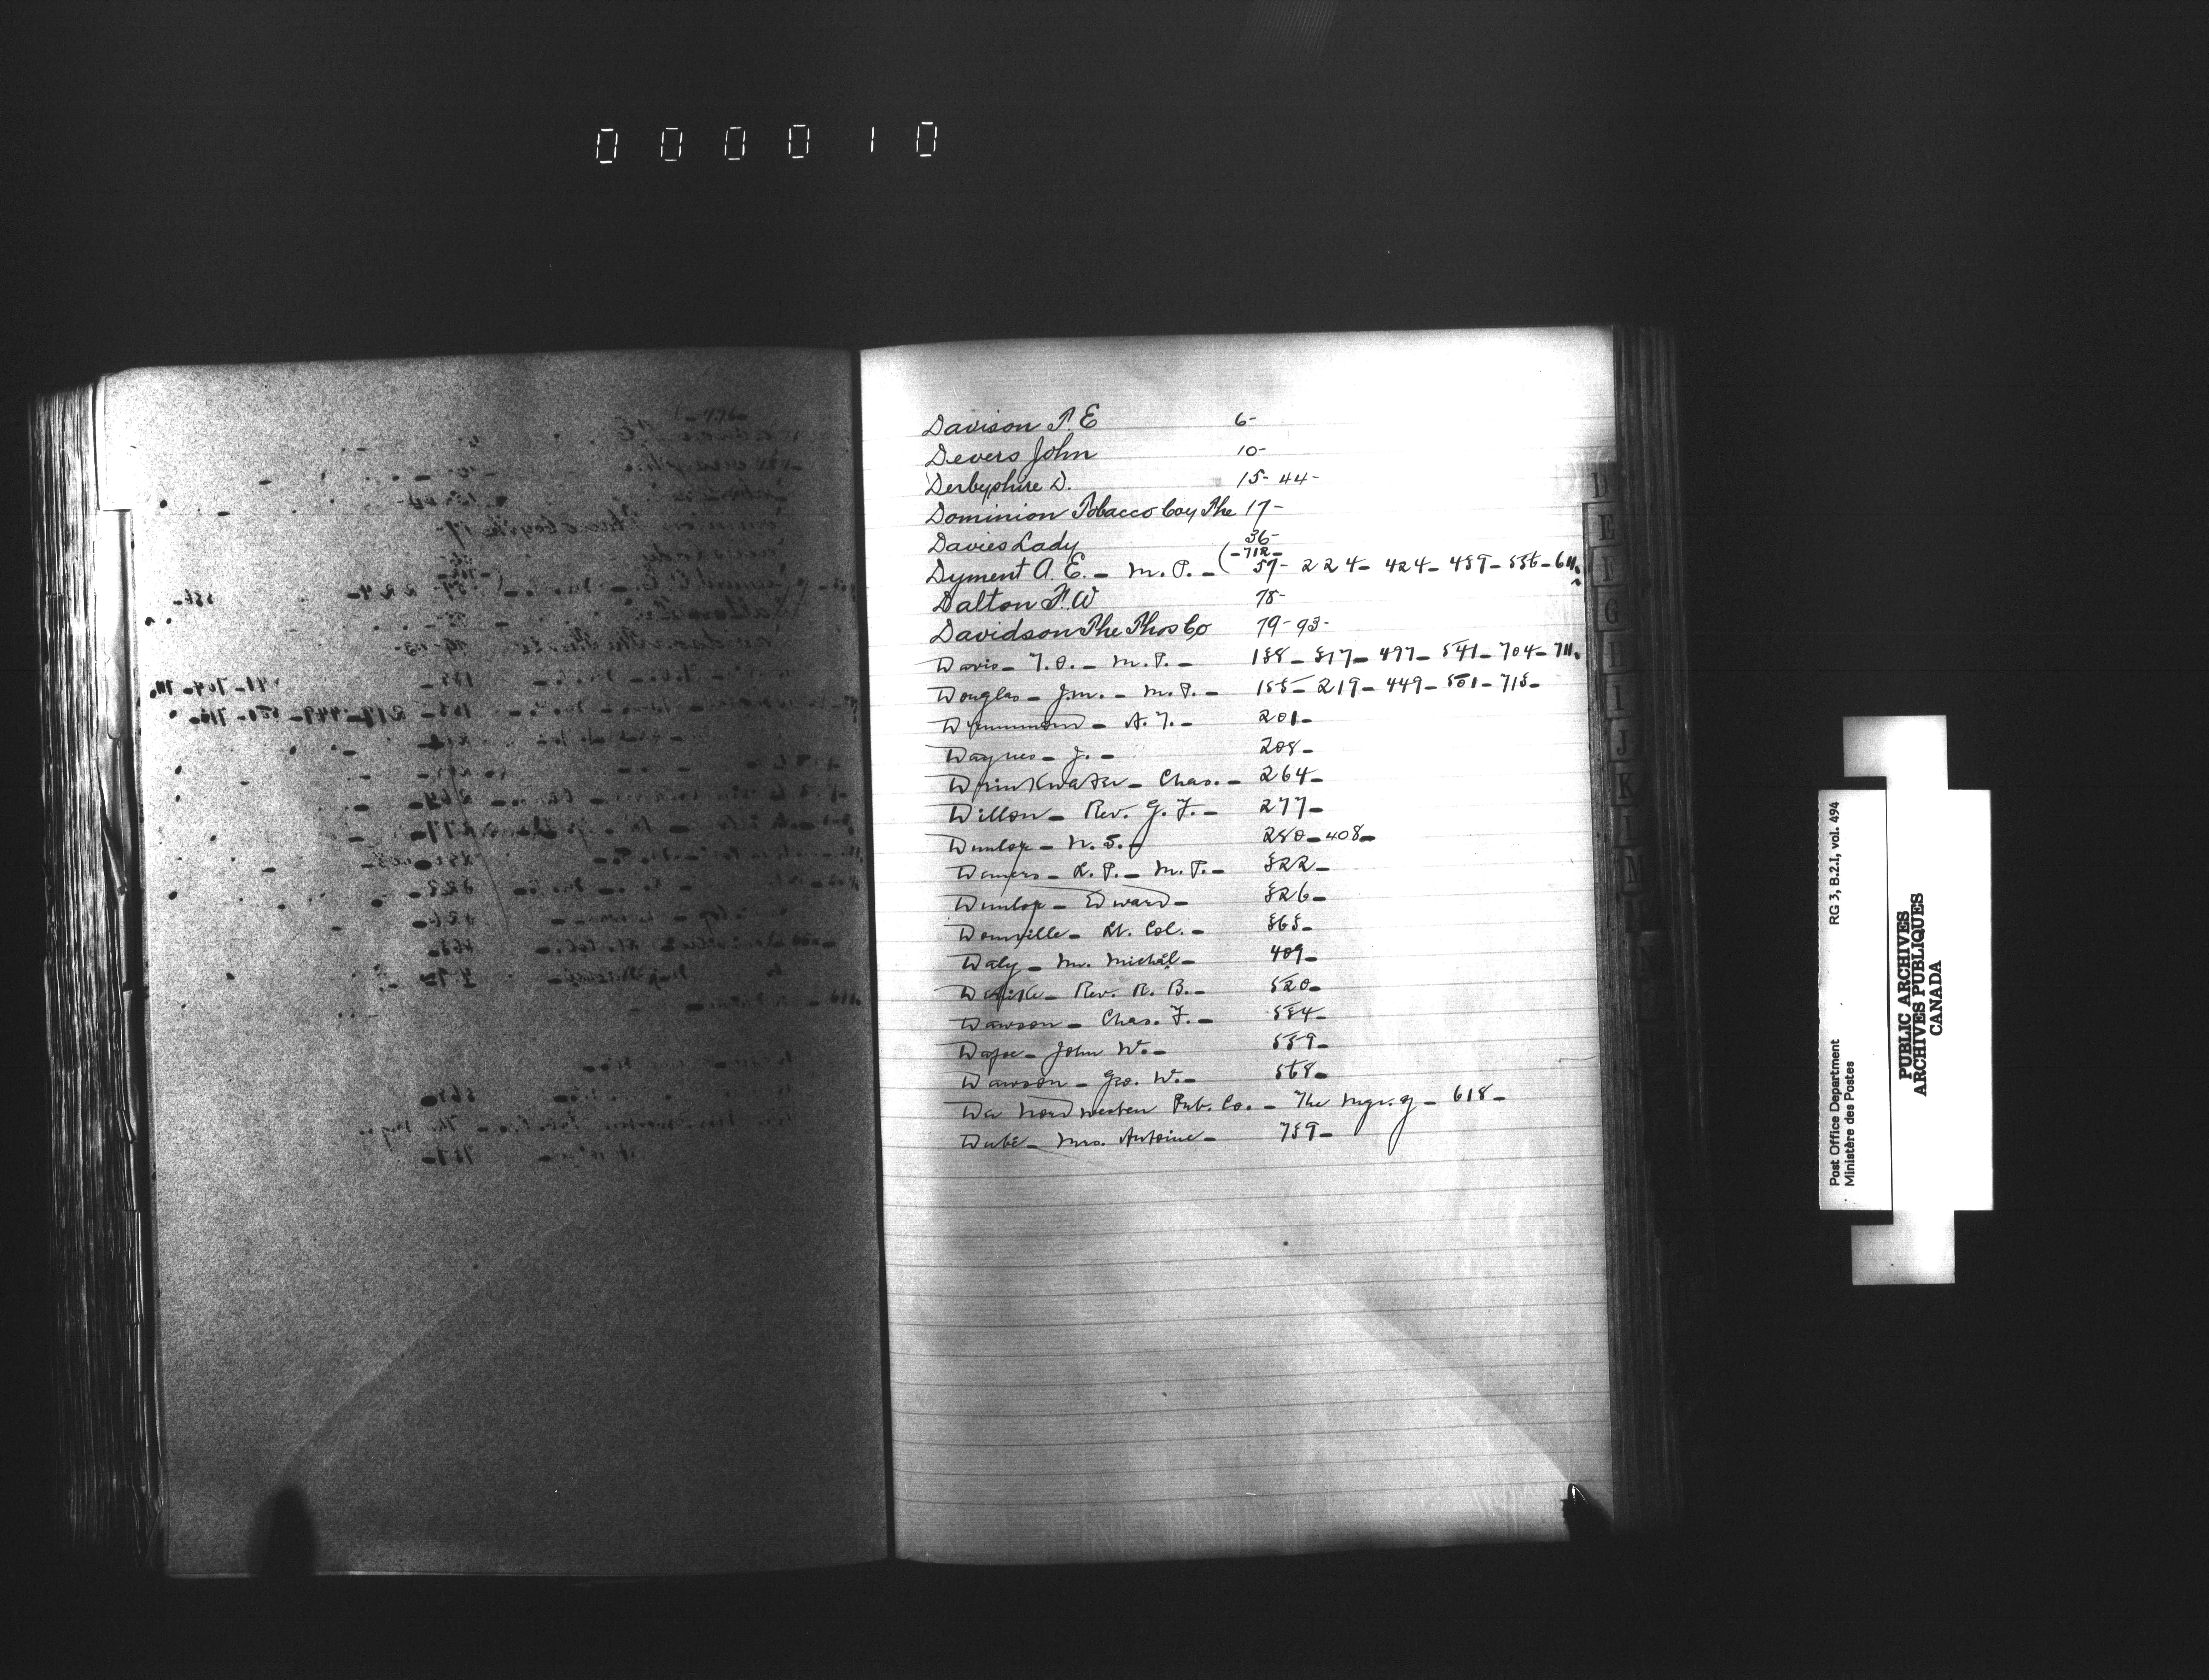 000010
Davison T. E 6-
Devers John 10-
Derbyshire D. 15- 44-
Dominion Tobacco Coy The 17-
Davies Lady 36-
(-712-
Dyment A. E. - M. P. - 57- 224- 424- 459- 556- 611.
Dalton F. W 78-
Davidson The Thos Co 79- 93-
Davis - T. O. - M. P. - 138- 317- 497- 541- 704- 711.
Douglas - J. M. - M. P. - 155- 219- 449- 501- 715-
Drummond - A. T. - 201-
Daynes - J. - 208-
Drinkwater - Chas. - 264-
Dillon - Rev. G. F. - 277-
Dunlop - N. S. - 280- 408-
Demers - L. P. - M. P. - 322-
Dunlop - Edward - 326-
Domville - Lt. Col. - 363-
Daly - Mr. Michæl - 409-
Rev. R. B. - 520-
Dawson - Chas. F. - 534-
John W. - 559-
Dawson - Geo. W. - 568-
Der Nordwesten Pub. Co. - The Mgr. of - 618-
Dubé - Mrs. Antoine - 739-
D
E
F
G
H
I
J
K
L
M
N
RG 3, B.2.I, vol. 494
Post Office Department
Ministère des Postes
PUBLIC ARCHIVES
ARCHIVES PUBLIQUES
CANADA